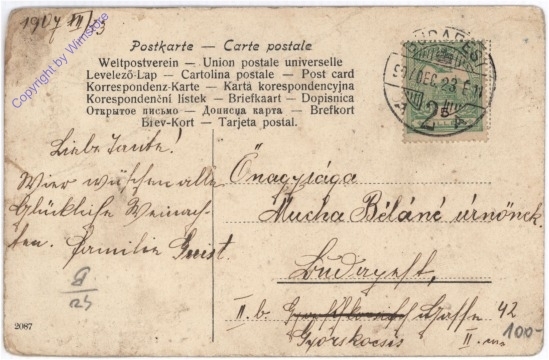 1907 XII/23
Copyright by Wimstore
Postkarte — Carte postale
Weltpostverein — Union postale universelle
Levelező-Lap — Cartolina postale — Post card
Korrespondenz-Karte — Kartă korespondencyjna
Korespondenční listek — Briefkaart — Dopisnica
Открытое письмо — Дописна карта — Brefkort
Brev-Kort — Tarjeta postal.
BUDAPEST
907 DEC. 23
2
Liebe Tante!
Wier wüschen alle
Glückliche Weinach-
ten. Familie Guist.
Őnagysága
Mucha Béláné úrnőnek
Budapest,
II. b. Gasse 42
Györskocsis II.
2087
100-